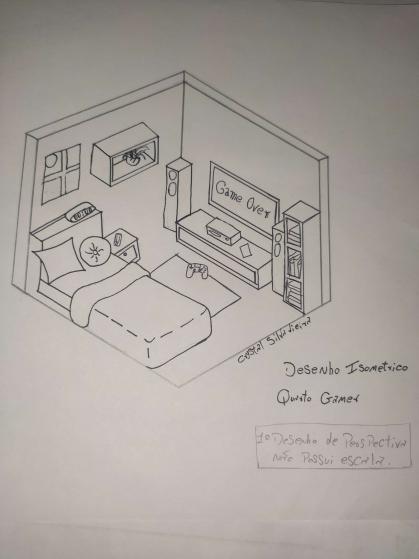 Game Over
Cristal Silva Vieira
Desenho Isometrico
Quarto Gamer
1º Desenho de Perspectiva
não Possui escala.